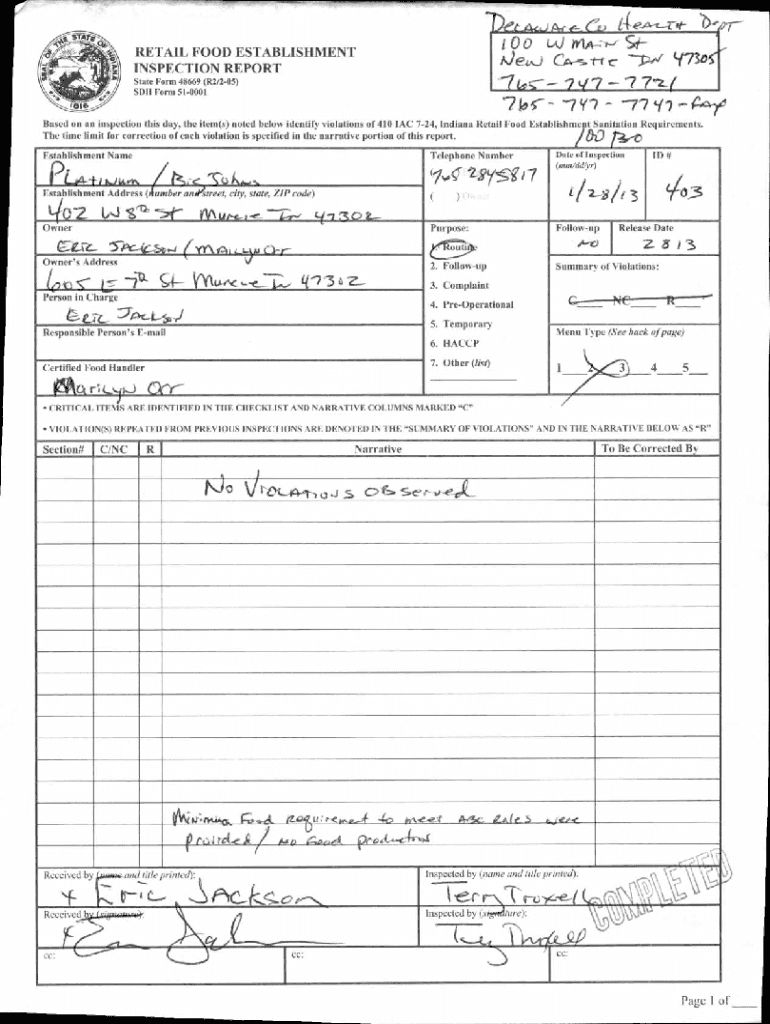 DELAWARE CO HEALTH DEPT
100 W MAIN St
NEW CASTLE IN 47305
765-747-7721
765-747-7747-fax
RETAIL FOOD ESTABLISHMENT
INSPECTION REPORT
State Form 48669 (R2/2-05)
SDH Form 51-0001
Based on an inspection this day, the item(s) noted below identify violations of 410 IAC 7-24, Indiana Retail Food Establishment Sanitation Requirements.
The time limit for correction of each violation is specified in the narrative portion of this report.
Establishment Name
PLATINUM / BIG JOHNS
Telephone Number
765 2845817
( ) Owner
Date of Inspection
(mm/dd/yr)
1/28/13
ID #
403
Establishment Address (number and street, city, state, ZIP code)
402 W 8th St Muncie IN 47302
Owner
ERIC JACKSON / MARILYN Orr
Owner's Address
605 E 7th St Muncie IN 47302
Person in Charge
ERIC JACKSON
Responsible Person's E-mail
Certified Food Handler
Marilyn Orr
Purpose:
1. Routine
2. Follow-up
3. Complaint
4. Pre-Operational
5. Temporary
6. HACCP
7. Other (list)
Follow-up
NO
Release Date
2 8 13
Summary of Violations:
C NC R
Menu Type (See back of page)
1 2 3 4 5
• CRITICAL ITEMS ARE IDENTIFIED IN THE CHECKLIST AND NARRATIVE COLUMNS MARKED "C"
• VIOLATION(S) REPEATED FROM PREVIOUS INSPECTIONS ARE DENOTED IN THE "SUMMARY OF VIOLATIONS" AND IN THE NARRATIVE BELOW AS "R"
Section# C/NC R Narrative To Be Corrected By
No VIOLATIONS OBServed
Minimum Food requirement to meet ABC Rules were
provided / NO Food production
Received by (name and title printed):
x ERIC JACKSON
Inspected by (name and title printed):
Terry Troxell
COMPLETED
Received by (signature):
Inspected by (signature):
Terry Troxell
cc: cc: cc:
Page 1 of